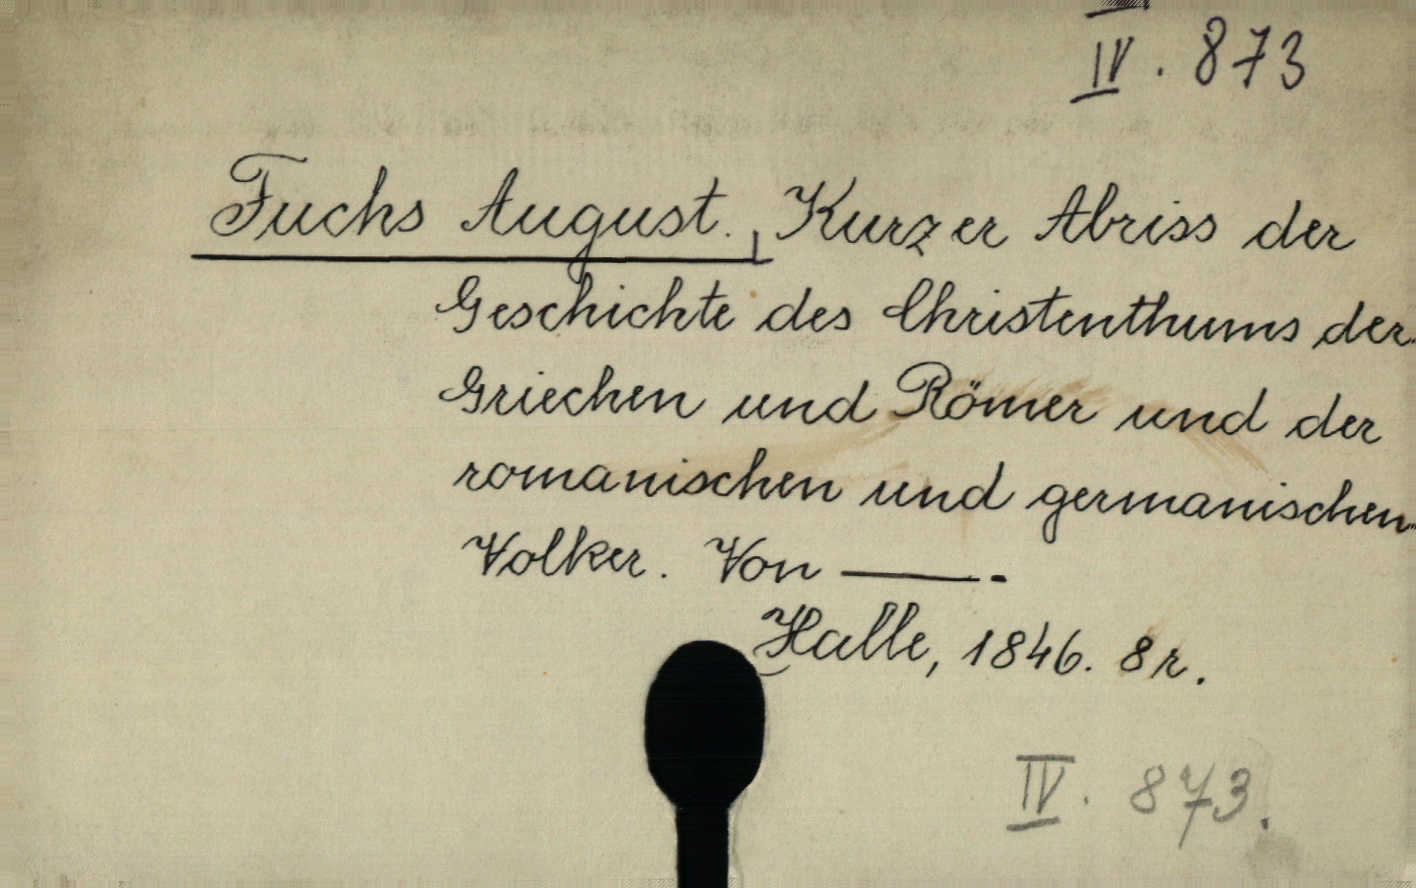 IV. 873
Fuchs August. Kurzer Abriss der
Geschichte des Christenthums der
Griechen und Römer und der
romanischen und germanischen
Volker. Von ———.
Halle, 1846. 8r.
IV. 873.